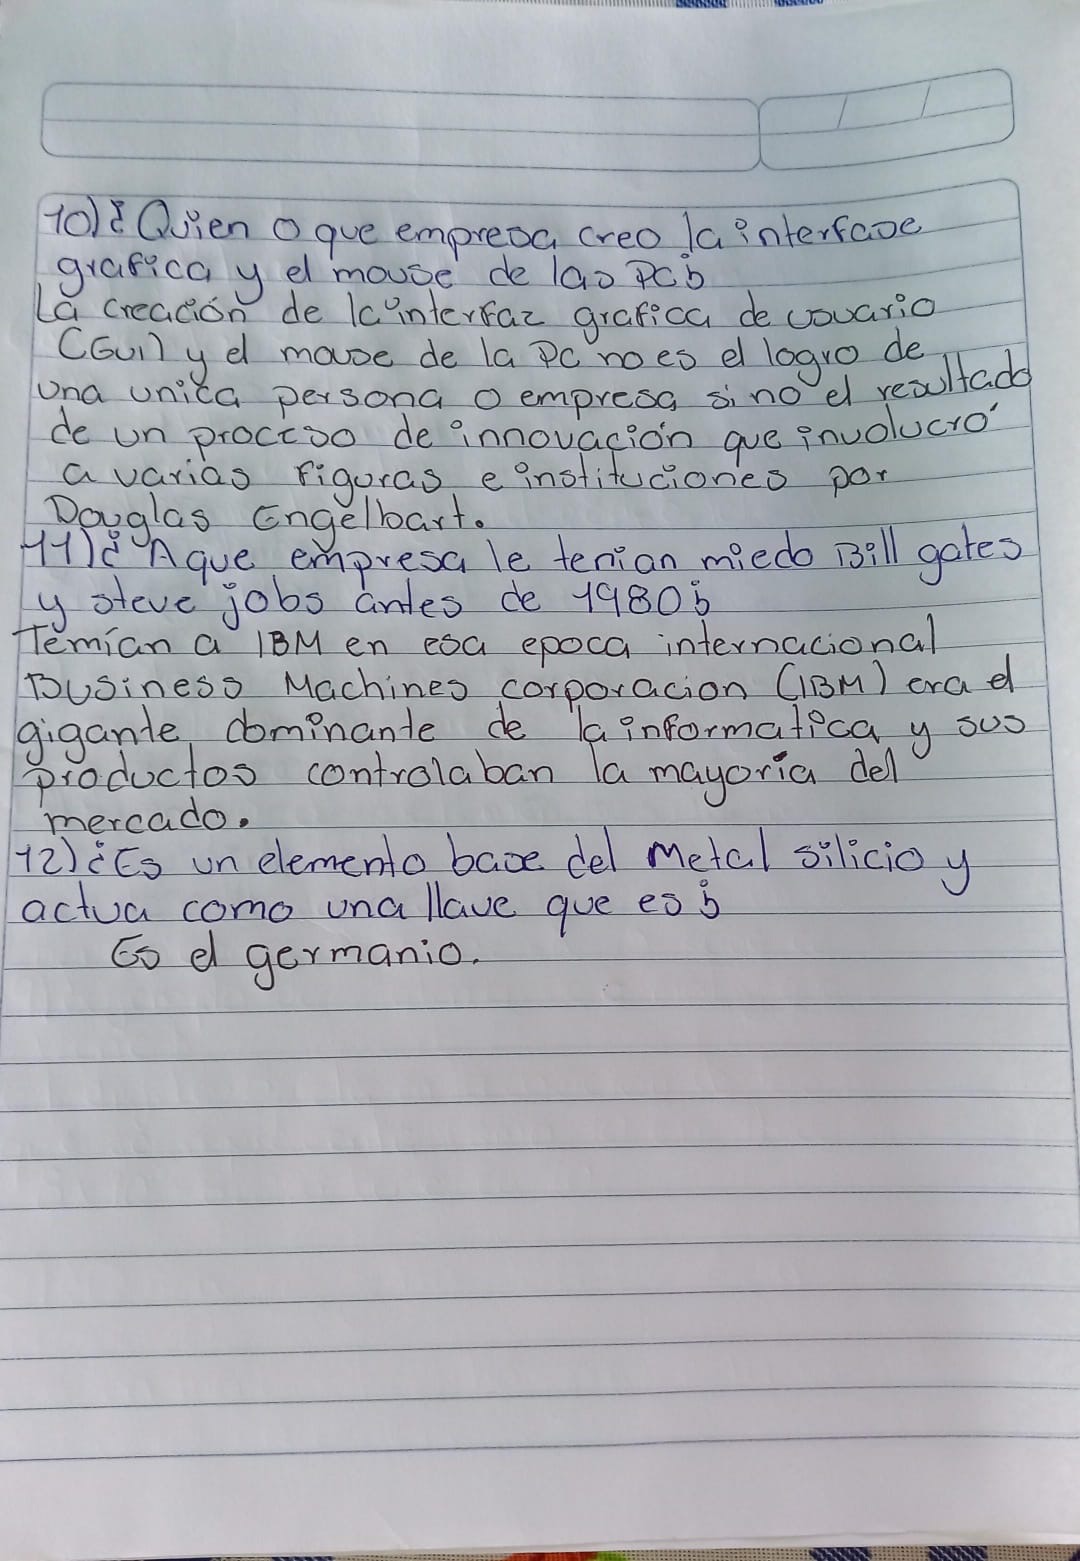 10)¿Quien o que empresa creo la interfase
grafica y el mouse de las PC?
La creación de la interfaz grafica de usuario
(GUI) y el mouse de la PC no es el logro de
una unica persona o empresa sino el resultado
de un proceso de innovación que involucró
a varias figuras e instituciones por
Douglas Engelbart.
11)¿A que empresa le tenian miedo Bill gates
y steve jobs antes de 1980?
Temían a IBM en esa epoca internacional
Business Machines corporacion (IBM) era el
gigante dominante de la informatica y sus
productos controlaban la mayoría del
mercado.
12)¿Es un elemento base del Metal silicio y
actua como una llave que es?
Es el germanio.